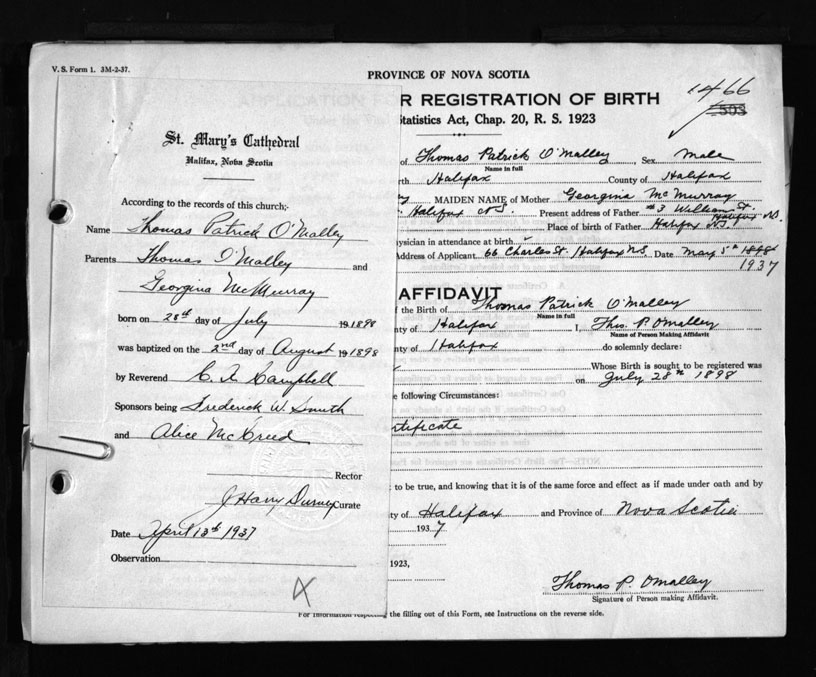 V. S. Form 1. 3M-2-37.
PROVINCE OF NOVA SCOTIA
1466
503
R REGISTRATION OF BIRTH
Statistics Act, Chap. 20, R. S. 1923
St. Mary's Cathedral
Halifax, Nova Scotia
According to the records of this church;-
Name Thomas Patrick O'Malley
Parents Thomas O'Malley and
Georgina McMurray
born on 28th day of July 1898
was baptized on the 2nd day of August 1898
by Reverend Campbell
Sponsors being Frederick W. Smith
and Alice McCreed
Rector
J Harry Durney Curate
Date April 13th 1937
Observation
X
of Thomas Patrick O'Malley Sex Male
Name in full
rth Halifax County of Halifax
y MAIDEN NAME of Mother Georgina McMurray
Halifax N.S. Present address of Father #3 William St. Halifax N.S.
Place of birth of Father Halifax N.S.
ysician in attendance at birth
Address of Applicant 66 Charles St. Halifax N.S. Date May 5th 1898
1937
AFFIDAVIT
f the Birth of Thomas Patrick O'Malley
Name in full
nty of Halifax I, Thos. P. O'Malley
Name of Person Making Affidavit
nty of Halifax do solemnly declare:
Whose Birth is sought to be registered was
on July 28th 1898
e following Circumstances:
rtificate
to be true, and knowing that it is of the same force and effect as if made under oath and by
ty of Halifax and Province of Nova Scotia
1937
1923,
Thomas P. O'Malley
Signature of Person making Affidavit.
For Information respecting the filling out of this Form, see Instructions on the reverse side.